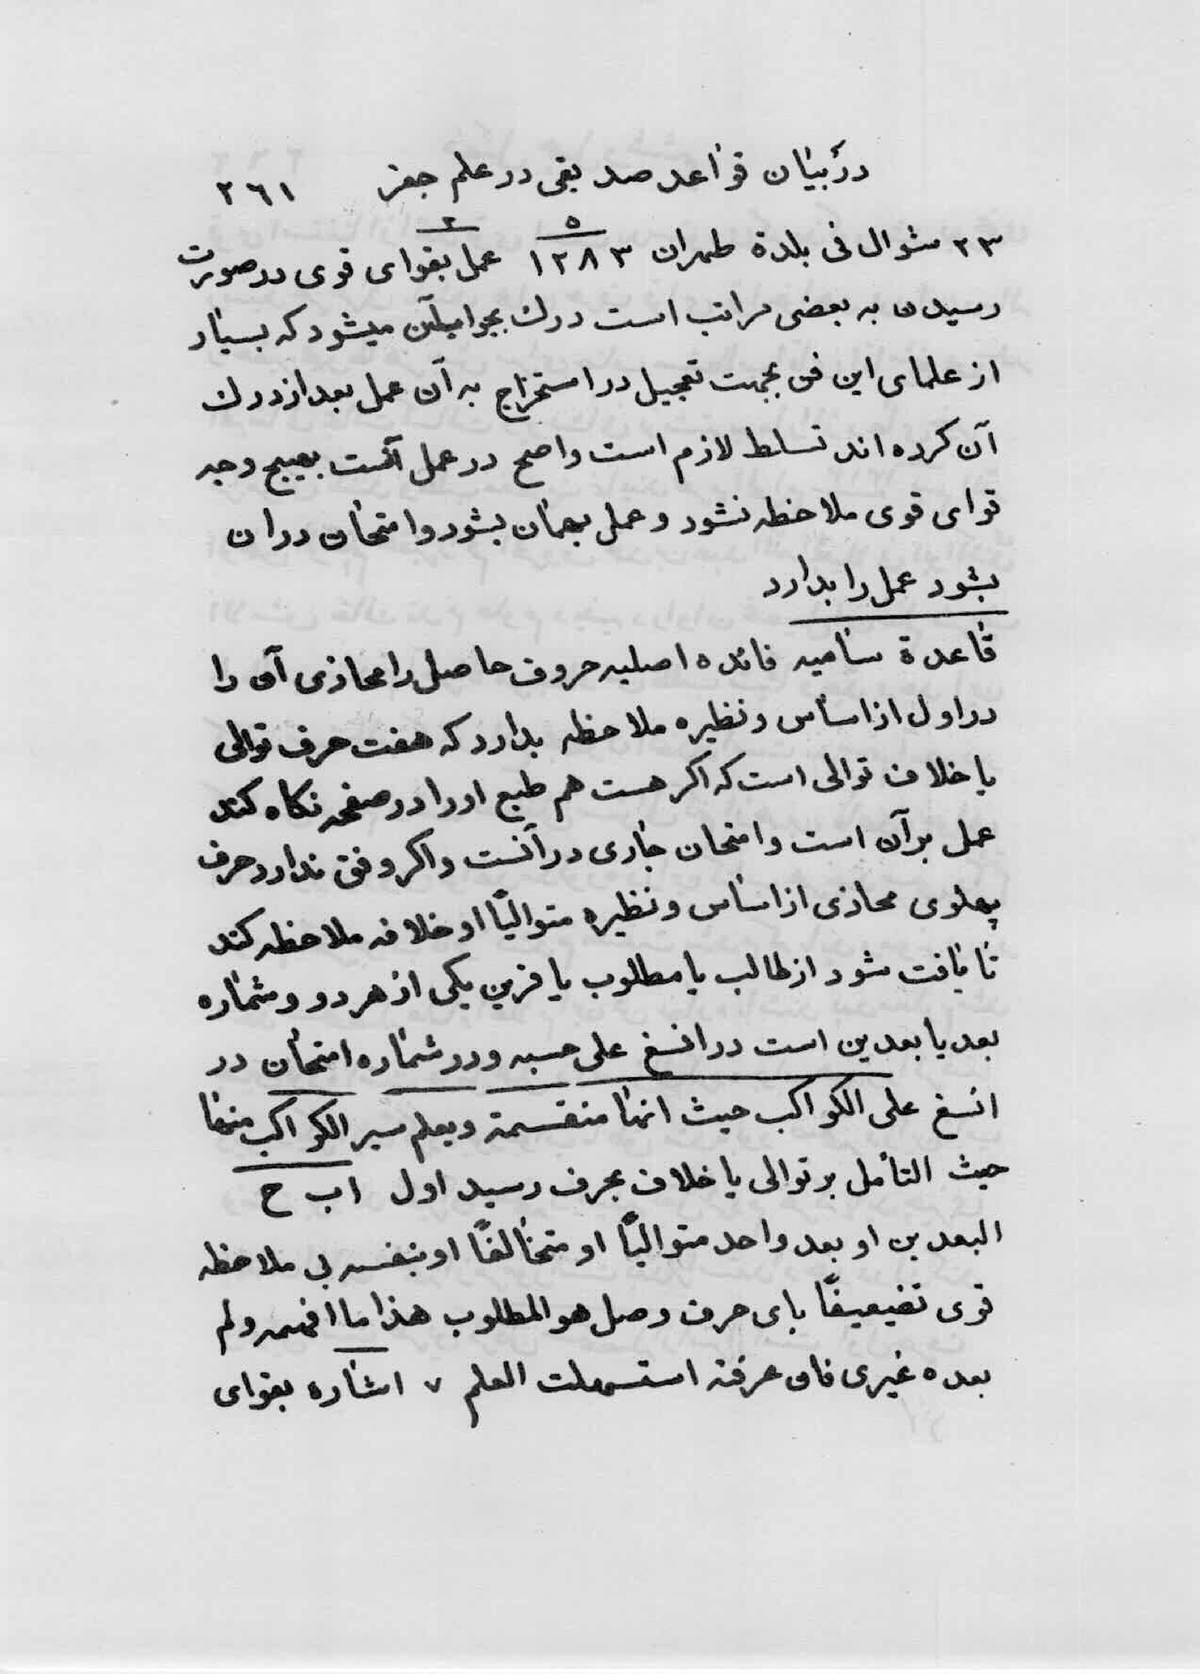 در بیان قواعد صدیقی در علم جفر ۲۶۱
۲۳ شوال فی بلدة طهران ۱۲۸۳ ۵ عمل بقوای قوی در صورت
رسیدن به بعضی مراتب است درك میشود که بسیار
از علمای این فن بجهت تعجیل در استخراج به آن عمل بعد از درك
آن کرده اند تسلط لازم است واصح در عمل آنست بهیچ وجه
قوای قوی ملاحظه نشود و عمل بهمان بشود وامتحان دران
بشود عمل را بدارد
قاعدة سامیه فائده اصلیه حروف حاصل را محاذی آن را
در اول از اساس و نظیره ملاحظه بدارد که هفت حرف توالی
یا خلاف توالی است که اکر هست هم طبع اورا در صفحه نکاه کند
عمل بر آن است وامتحان جاری در آنست واکر وفق ندارد حرف
پهلوی محاذی از اساس و نظیره متوالیًا او خلافه ملاحظه کند
تا یافت شود از طالب یا مطلوب یا قرین یکی از هر دو و شماره
بعد یا بعدین است در انسغ علی حسبه ودر شماره امتحان در
انسغ علی الکواکب حیث انها منقسمة ویعلم سیر الکواکب منها
حیث التأمل بر توالی یا خلاف بحرف رسید اول اب ح
البعدین او بعد واحد متوالیًا او متخالفًا او بنفسه بی ملاحظه
قوی تضیعیفًا بای حرف وصل هو المطلوب هذا ما افهمه ولم
بعده غیری فان عرفته استسهلت العلم ۷ اشاره بقوای